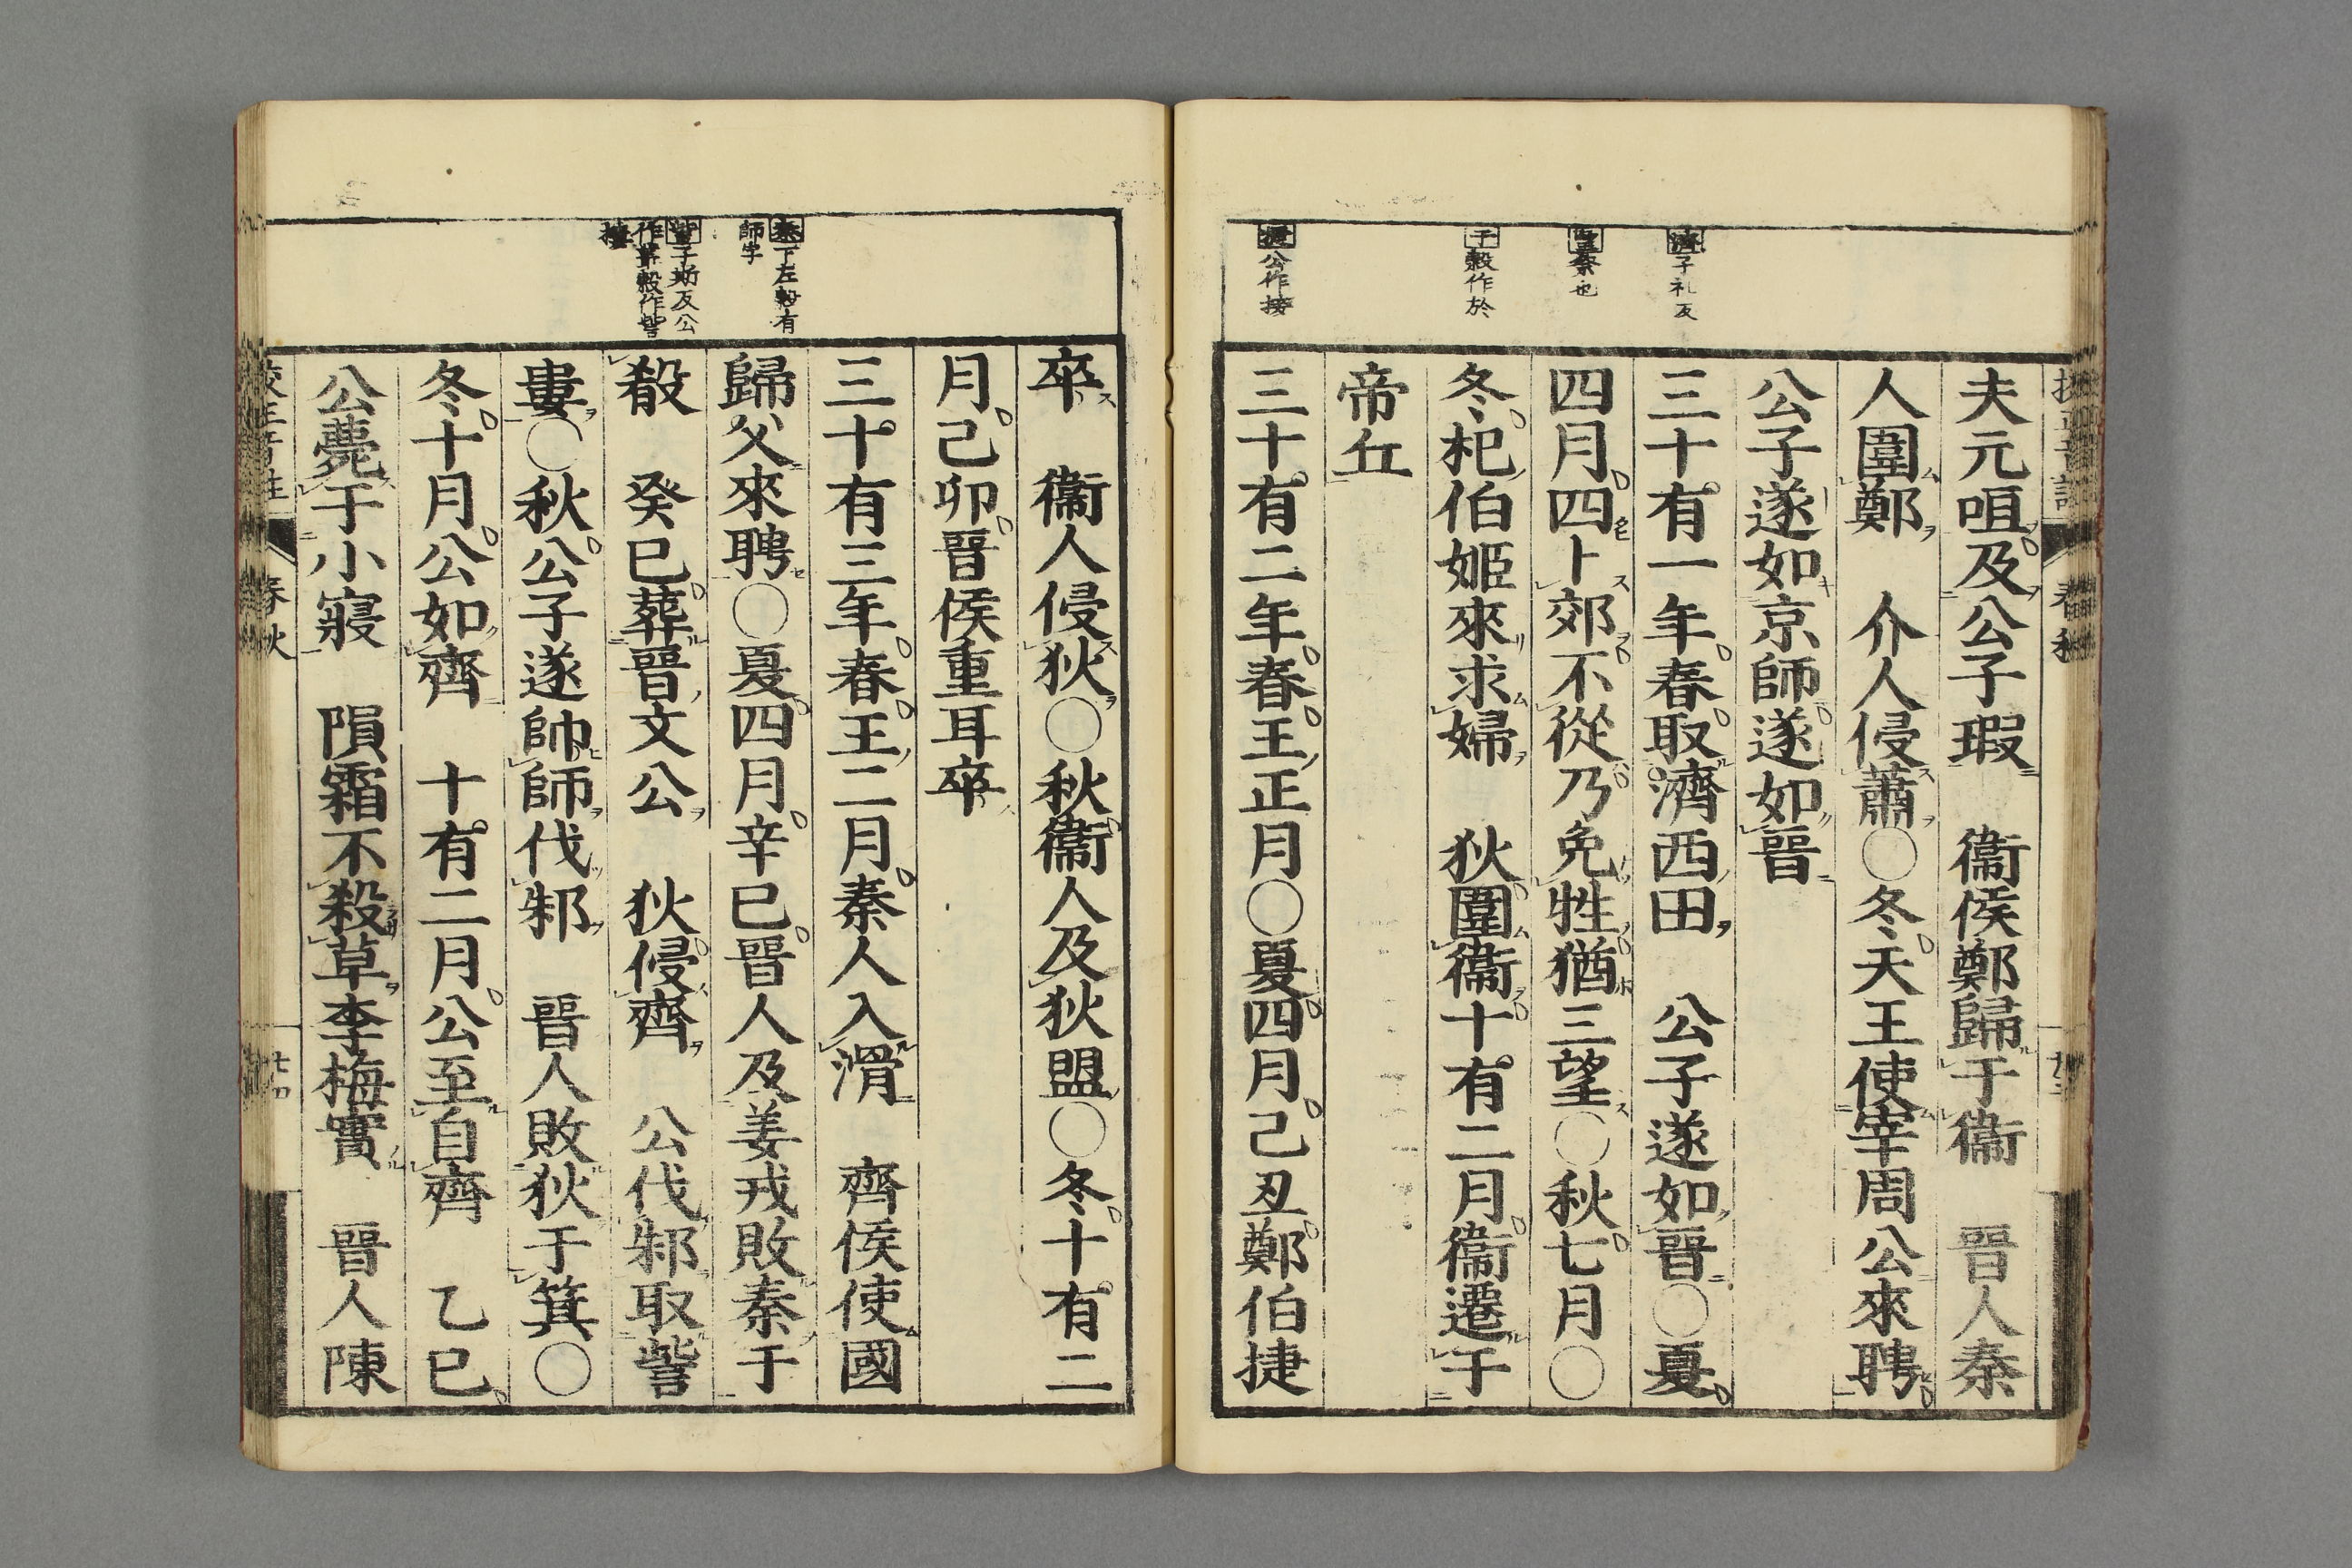 夫元咺及公子瑕　衞侯鄭歸于衞　晉人秦
人圍鄭　介人侵蕭○冬天王使宰周公來聘
公子遂如京師遂如晉
三十有一年春取濟西田　公子遂如晉○夏
四月四卜郊不從乃免牲猶三望○秋七月○
冬杞伯姬來求婦　狄圍衞十有二月衞遷于
帝丘
三十有二年春王正月○夏四月己丑鄭伯捷
卒　衞人侵狄○秋衞人及狄盟○冬十有二
月己卯晉侯重耳卒
三十有三年春王二月秦人入滑　齊侯使國
歸父來聘○夏四月辛巳晉人及姜戎敗秦于
殽　癸巳葬晉文公　狄侵齊　公伐邾取訾
婁○秋公子遂帥師伐邾　晉人敗狄于箕○
冬十月公如齊　十有二月公至自齊　乙巳
公薨于小寢　隕霜不殺草李梅實　晉人陳
濟子礼反
于穀作於
捷公作接
秦下左穀有
師字
訾子斯反公
春秋
春秋
廿四